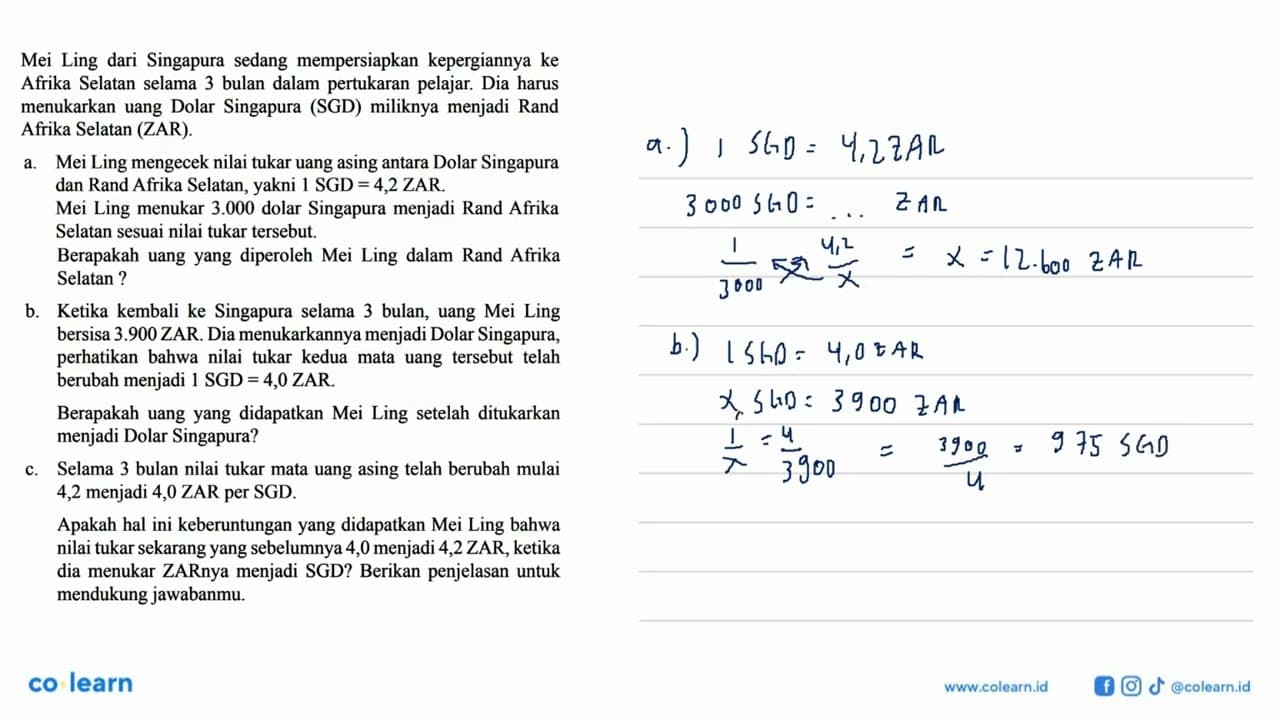 Mei Ling dari Singapura sedang mempersiapkan kepergiannya ke
Afrika Selatan selama 3 bulan dalam pertukaran pelajar. Dia harus
menukarkan uang Dolar Singapura (SGD) miliknya menjadi Rand
Afrika Selatan (ZAR).
a. Mei Ling mengecek nilai tukar uang asing antara Dolar Singapura
dan Rand Afrika Selatan, yakni 1 SGD = 4,2 ZAR.
Mei Ling menukar 3.000 dolar Singapura menjadi Rand Afrika
Selatan sesuai nilai tukar tersebut.
Berapakah uang yang diperoleh Mei Ling dalam Rand Afrika
Selatan ?
b. Ketika kembali ke Singapura selama 3 bulan, uang Mei Ling
bersisa 3.900 ZAR. Dia menukarkannya menjadi Dolar Singapura,
perhatikan bahwa nilai tukar kedua mata uang tersebut telah
berubah menjadi 1 SGD = 4,0 ZAR.
Berapakah uang yang didapatkan Mei Ling setelah ditukarkan
menjadi Dolar Singapura?
c. Selama 3 bulan nilai tukar mata uang asing telah berubah mulai
4,2 menjadi 4,0 ZAR per SGD.
Apakah hal ini keberuntungan yang didapatkan Mei Ling bahwa
nilai tukar sekarang yang sebelumnya 4,0 menjadi 4,2 ZAR, ketika
dia menukar ZARnya menjadi SGD? Berikan penjelasan untuk
mendukung jawabanmu.
a.) 1 SGD = 4,2 ZAR
3000 SGD = ... ZAR
1/3000 4,2/x = x = 12.600 ZAR
b.) 1 SGD = 4,0 ZAR
x SGD = 3900 ZAR
1/x = 4/3900 = 3900/4 = 975 SGD
co learn
www.colearn.id
@colearn.id